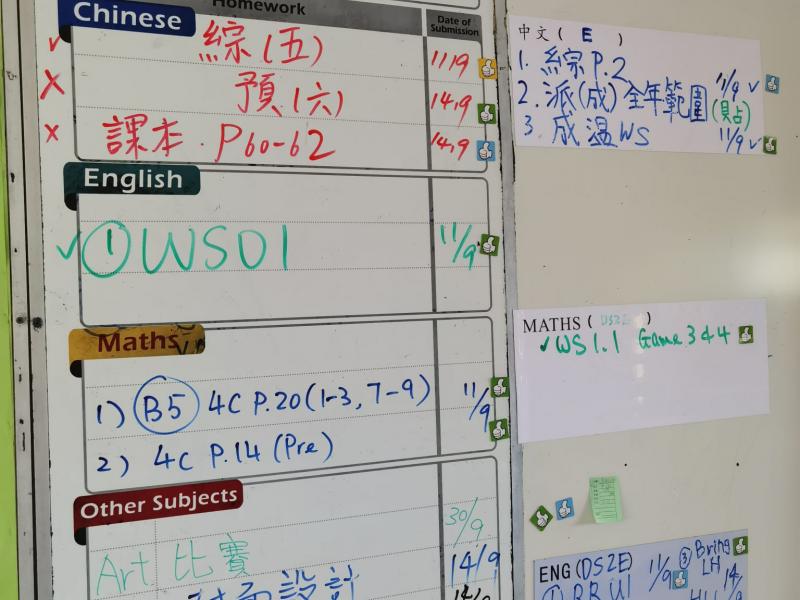 Homework
Date of Submission
Chinese
綜(五) 11/9
預(六) 14,9
課本.P60-62 14,9
English
①WS01 11/9
Maths
1) B5 4C P.20(1-3, 7-9) 11/9
2) 4C P.14 (Pre)
Other Subjects
Art 比賽 30/9
設計 14/9
14/9
中文 ( E )
1. 綜P.2 11/9
2. 派(成)全年範圍(貝占)
3. 成溫WS 11/9
MATHS ( DS2E )
WS1.1 Game 3 & 4
ENG (DS2E) 11/9 ③ Bring LH 14/
① RBW